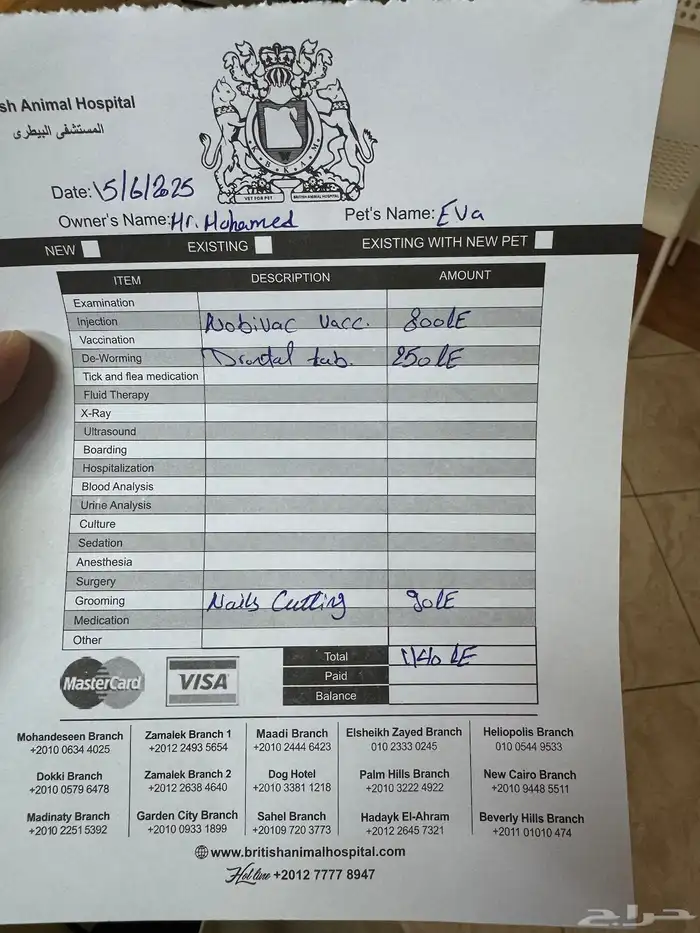 sh Animal Hospital
المستشفى البيطرى
K.B.K.A.M
VET FOR PET BRITISH ANIMAL HOSPITAL
Date: 15/6/2025
Owner's Name: Mr. Mohamed Pet's Name: Eva
NEW EXISTING EXISTING WITH NEW PET
ITEM DESCRIPTION AMOUNT
Examination
Injection Nobivac Vacc. 800 LE
Vaccination
De-Worming Drontal tab. 250 LE
Tick and flea medication
Fluid Therapy
X-Ray
Ultrasound
Boarding
Hospitalization
Blood Analysis
Urine Analysis
Culture
Sedation
Anesthesia
Surgery
Grooming Nails Cutting 90 LE
Medication
Other
Total 1140 LE
Paid
Balance
MasterCard VISA
Mohandeseen Branch Zamalek Branch 1 Maadi Branch Elsheikh Zayed Branch Heliopolis Branch
+2010 0634 4025 +2012 2493 5654 +2010 2444 6423 010 2333 0245 010 0544 9533
Dokki Branch Zamalek Branch 2 Dog Hotel Palm Hills Branch New Cairo Branch
+2010 0579 6478 +2012 2638 4640 +2010 3381 1218 +2010 3222 4922 +2010 9448 5511
Madinaty Branch Garden City Branch Sahel Branch Hadayk El-Ahram Beverly Hills Branch
+2010 2251 5392 +2010 0933 1899 +20109 720 3773 +2012 2645 7321 +2011 01010 474
www.britishanimalhospital.com
Hot line +2012 7777 8947
حراج